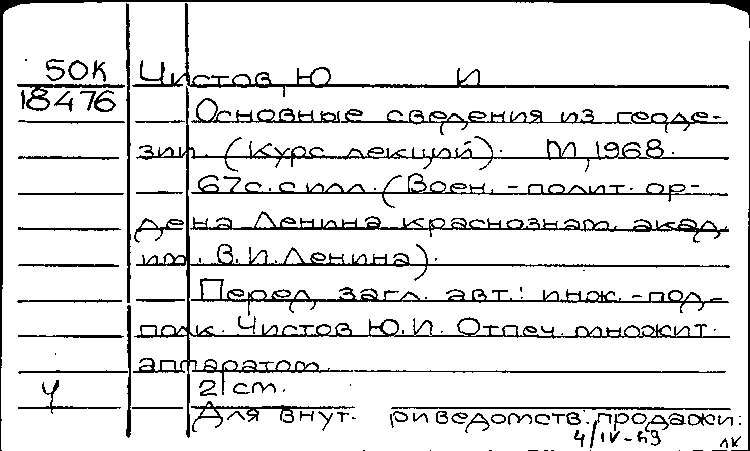 50К Чистов, Ю И
18476
Основные сведения из геоде-
зии. (Курс лекций). М, 1968.
67с. с илл. (Воен. -полит. ор-
дена Ленина краснознам. акад.
им. В. И. Ленина).
Перед загл. авт.: инж. -под-
полк. Чистов Ю. И. Отпеч. множит.
аппаратом.
Ч 21 cm.
Для внут. риведомств. продажи.
4/IV-69 ЛК